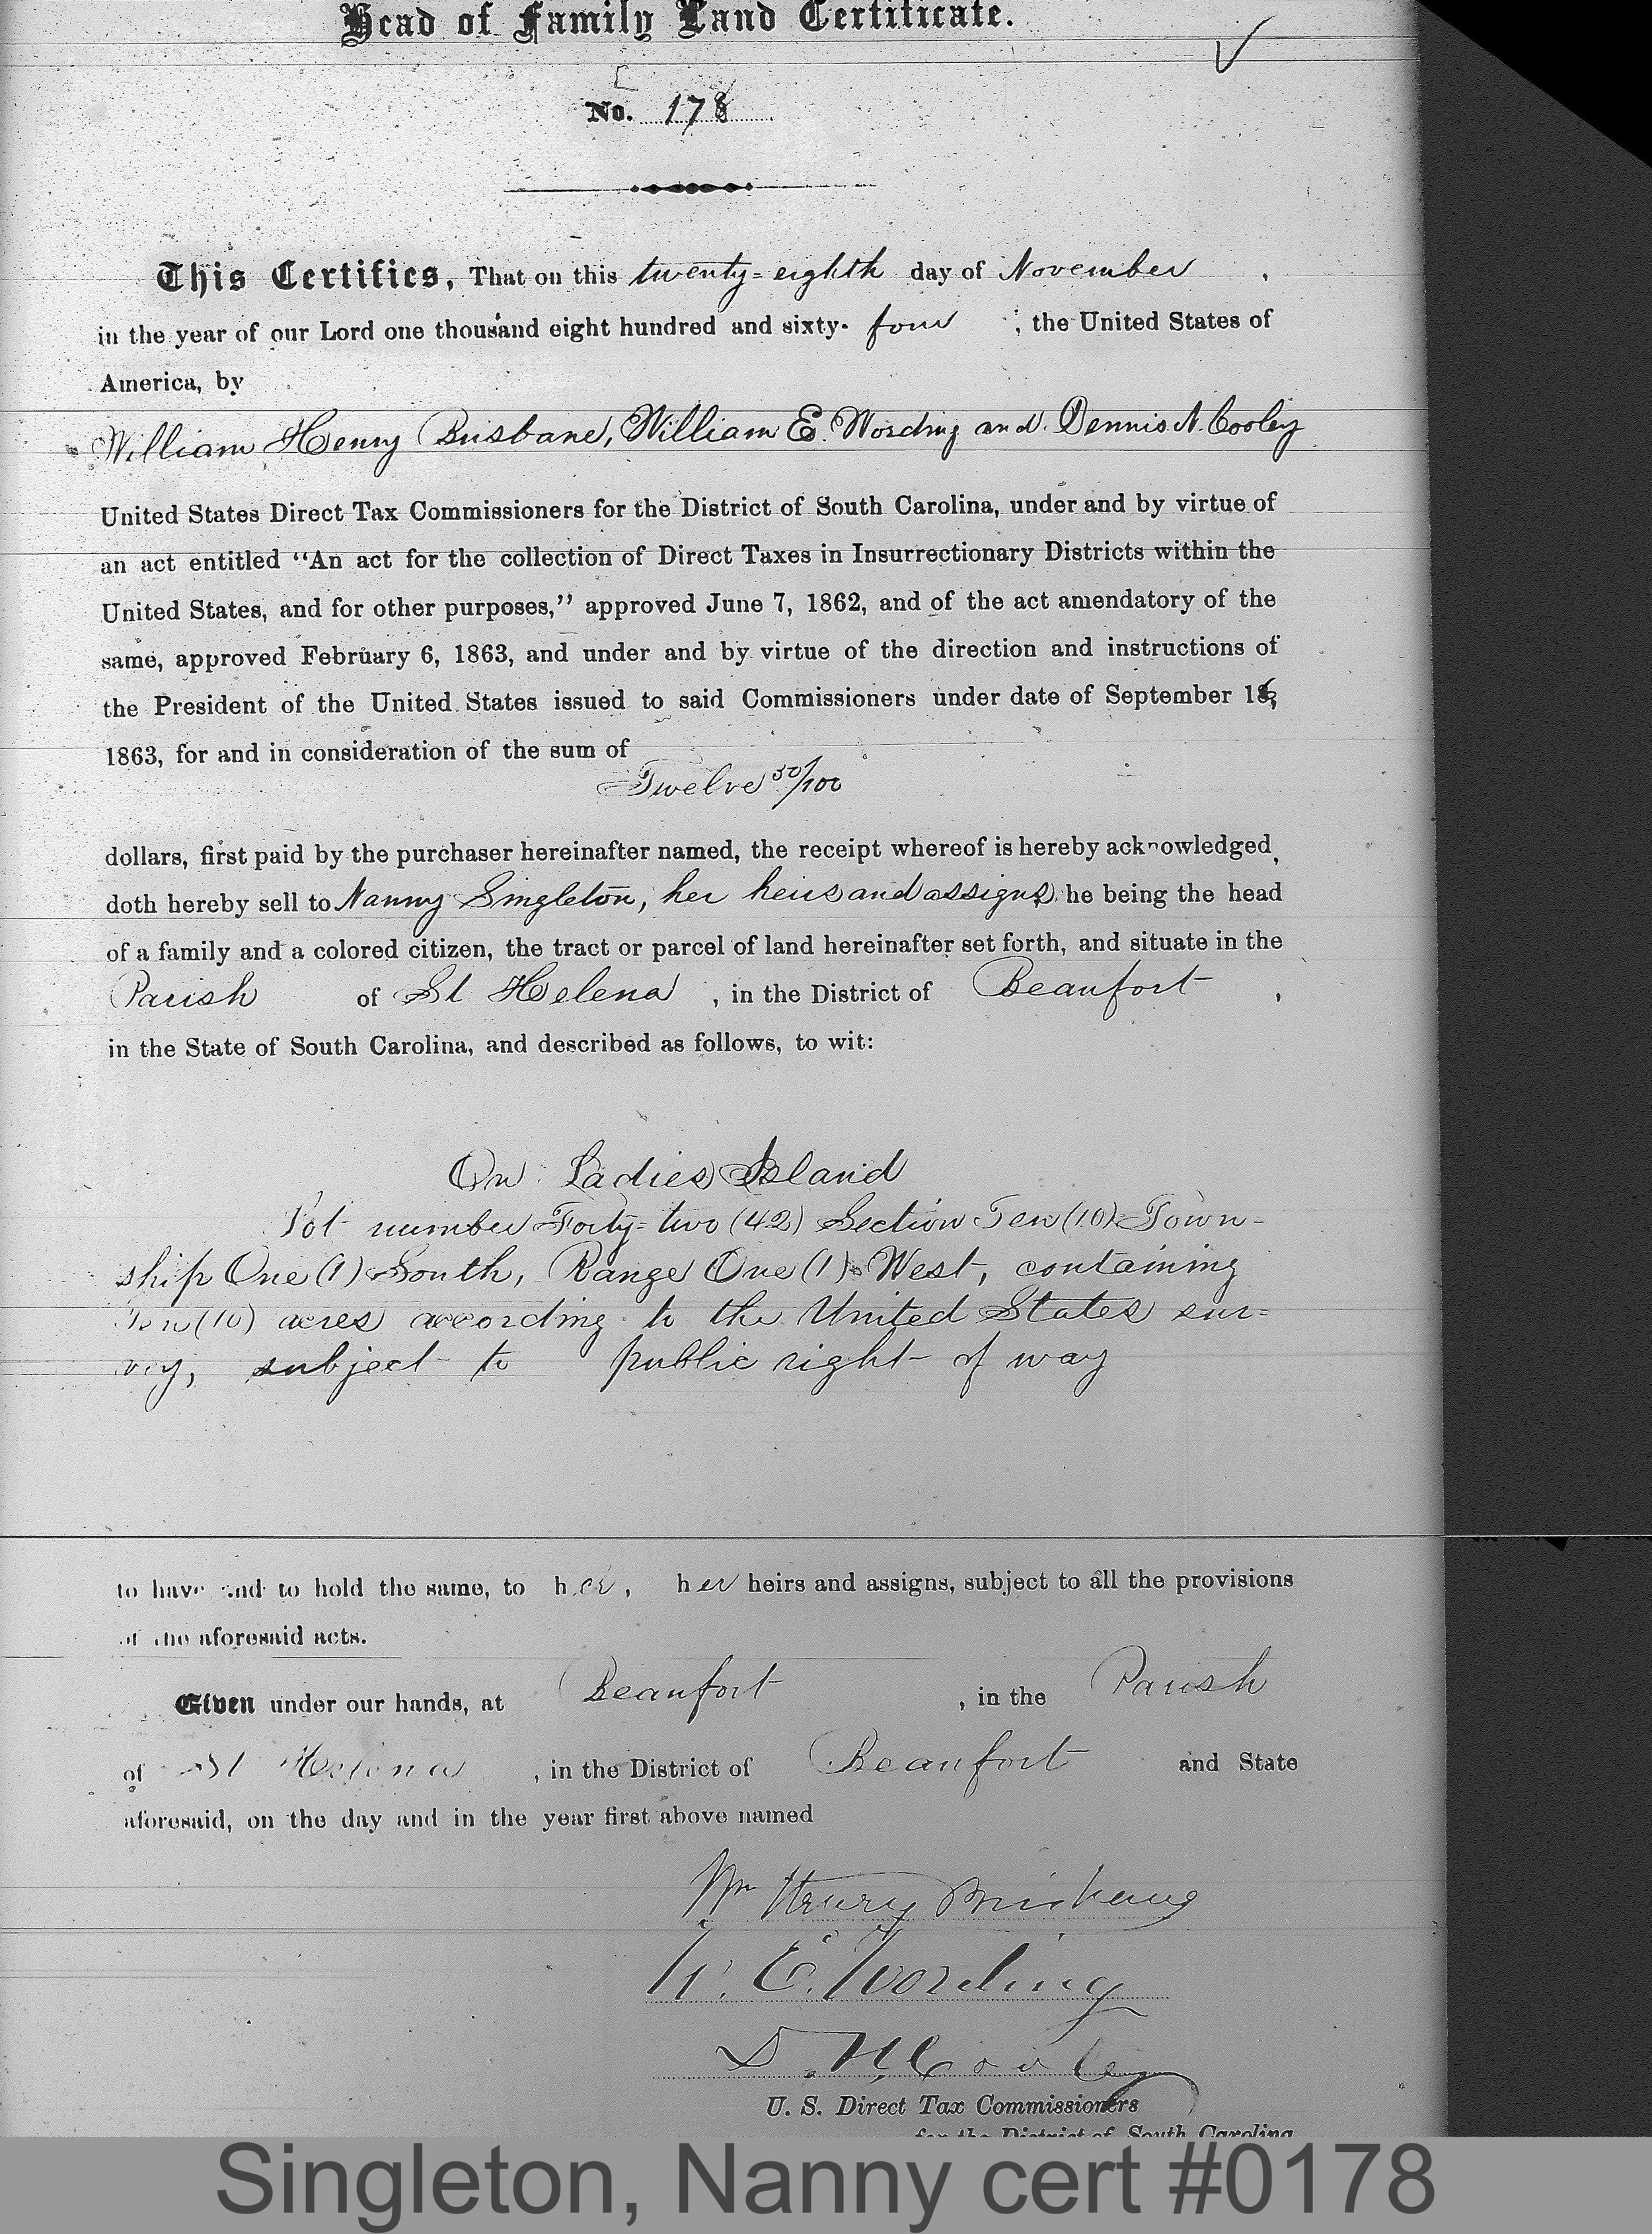 Head of Family Land Certificate.
No. 178
This Certifies, That on this twenty-eighth day of November ,
in the year of our Lord one thousand eight hundred and sixty- four ; the United States of
America, by
William Henry Brisbane, William E. Wording and Dennis N. Cooley
United States Direct Tax Commissioners for the District of South Carolina, under and by virtue of
an act entitled "An act for the collection of Direct Taxes in Insurrectionary Districts within the
United States, and for other purposes," approved June 7, 1862, and of the act amendatory of the
same, approved February 6, 1863, and under and by virtue of the direction and instructions of
the President of the United States issued to said Commissioners under date of September 16,
1863, for and in consideration of the sum of
Twelve 50/100
dollars, first paid by the purchaser hereinafter named, the receipt whereof is hereby acknowledged,
doth hereby sell to Nanny Singleton, her heirs and assigns, he being the head
of a family and a colored citizen, the tract or parcel of land hereinafter set forth, and situate in the
Parish of St Helena , in the District of Beaufort ,
in the State of South Carolina, and described as follows, to wit:
On Ladies Island
Lot number Forty-two (42) Section Ten (10) Town-
ship One (1) South, Range One (1) West, containing
Ten (10) acres according to the United States sur-
vey, subject to public right of way
to have and to hold the same, to her, her heirs and assigns, subject to all the provisions
of the aforesaid acts.
Given under our hands, at Beaufort , in the Parish
of St Helena , in the District of Beaufort and State
aforesaid, on the day and in the year first above named
Wm Henry Brisbane
W. E. Wording
D. N. Cooley
U. S. Direct Tax Commissioners
for the District of South Carolina
Singleton, Nanny cert #0178